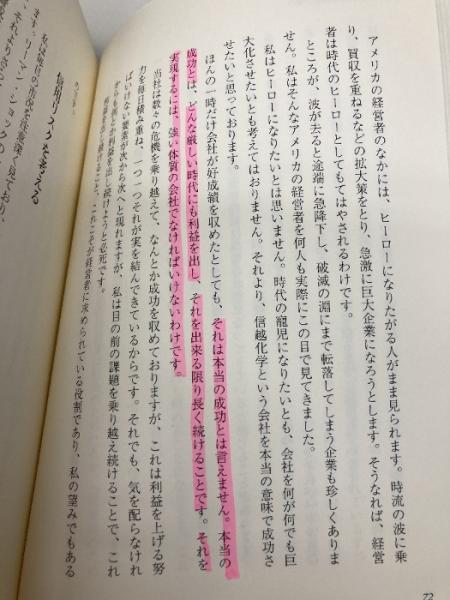 アメリカの経営者のなかには、ヒーローになりたがる人がまま見られます。時流の波に乗
り、買収を重ねるなどの拡大策をとり、急激に巨大企業になろうとします。そうなれば、経営
者は時代のヒーローとしてもてはやされるわけです。
ところが、波が去ると途端に急降下し、破滅の淵にまで転落してしまう企業も珍しくありま
せん。私はそんなアメリカの経営者を何人も実際にこの目で見てきました。
私はヒーローになりたいとは思いません。時代の寵児になりたいとも、会社を何が何でも巨
大化させたいとも考えてはおりません。それより、信越化学という会社を本当の意味で成功さ
せたいと思っております。
ほんの一時だけ会社が好成績を収めたとしても、それは本当の成功とは言えません。本当の
成功とは、どんな厳しい時代にも利益を出し、それを出来る限り長く続けることです。それを
実現するには、強い体質の会社でなければいけないわけです。
当社は数々の危機を乗り越えて、なんとか成功を収めておりますが、これは利益を上げる努
力を毎日積み重ね、一つ一つそれが実を結んできているからです。それでも、気を配らなけれ
ばいけない要素が次から次へと現れますが、私は目の前の課題を乗り越え続けることで、これ
からも
利益を出し続けようと必死です。
こそが経営者に求められている役割であり、私の望みでもある
72
信用リスクを考える
リーマン・ショックの